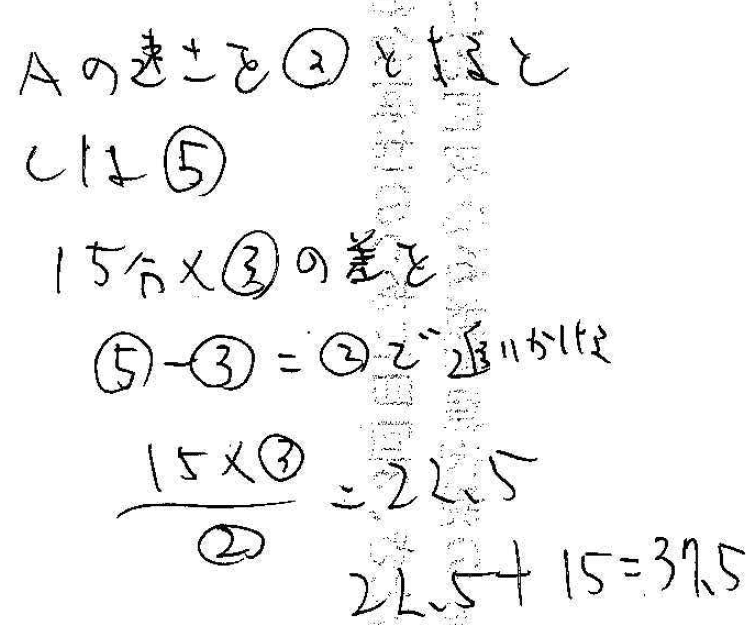 Aの速さを②とすると
しは⑤
15分×③の差を
⑤-③=②で追いかける
15×③
②
=22.5
22.5+15=37.5